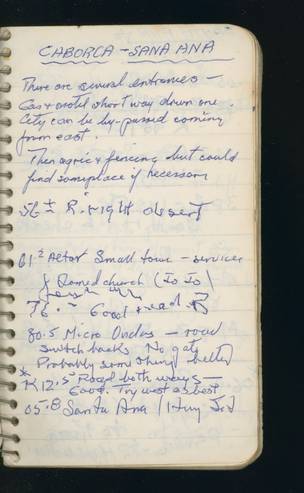 CABORCA - SANA ANA
There are several entrances -
Gas & motel short way down one.
City can be by-passed coming
from east.
Then agric & fencing but could
find someplace if necessary
56 ± R. right desert
61.2 Altar Small town - services
& Domed church (
76. Good road R
80.5 Micro Ondas - road
switchbacks No gate
Probably something better
* K12.5 Road both ways -
Good. Try west as best
05.8 Santa Ana / Hwy Jct